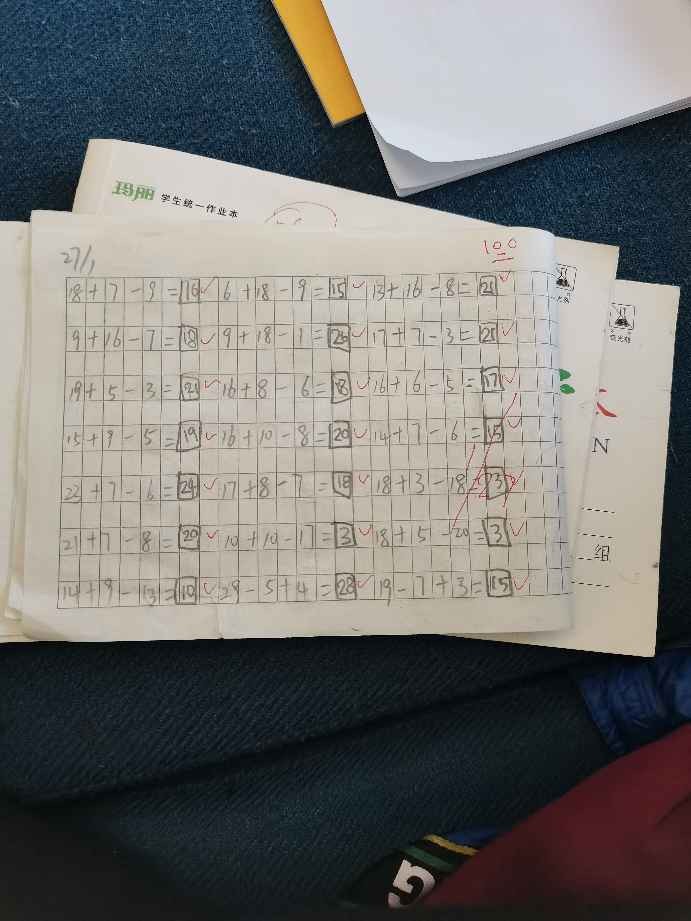 玛丽 学生统一作业本
27/1
100
18+7-9=16 6+18-9=15 13+16-8=21
9+16-7=18 9+18-1=26 17+7-3=21
19+5-3=21 16+8-6=18 16+6-5=17
15+9-5=19 16+10-8=20 14+7-6=15
22+7-6=24 17+8-7=18 18+3-18=23
21+7-8=20 10+10-17=3 18+5-20=3
14+9-13=10 29-5+4=28 19-7+3=15
N
组